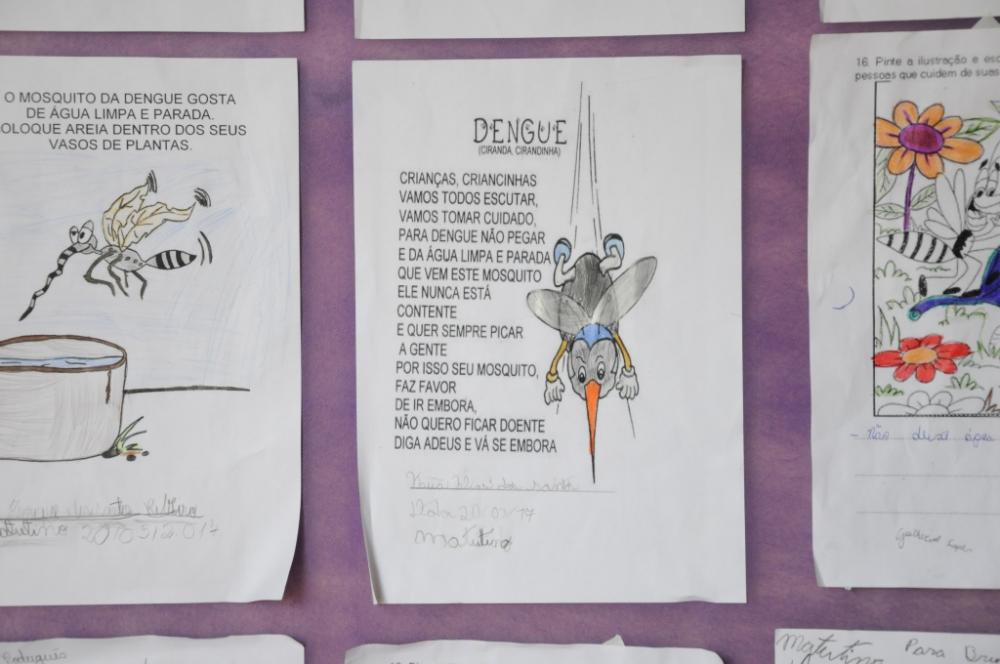 O MOSQUITO DA DENGUE GOSTA
DE ÁGUA LIMPA E PARADA.
OLOQUE AREIA DENTRO DOS SEUS
VASOS DE PLANTAS.
DENGUE
(CIRANDA, CIRANDINHA)
CRIANÇAS, CRIANCINHAS
VAMOS TODOS ESCUTAR,
VAMOS TOMAR CUIDADO,
PARA DENGUE NÃO PEGAR
E DA ÁGUA LIMPA E PARADA
QUE VEM ESTE MOSQUITO
ELE NUNCA ESTÁ
CONTENTE
E QUER SEMPRE PICAR
A GENTE
POR ISSO SEU MOSQUITO,
FAZ FAVOR
DE IR EMBORA,
NÃO QUERO FICAR DOENTE
DIGA ADEUS E VÁ SE EMBORA
Matutino
16. Pinte a ilustração e esc
pessoas que cuidem de suas
- Não deixa água
Português
Matutino Para